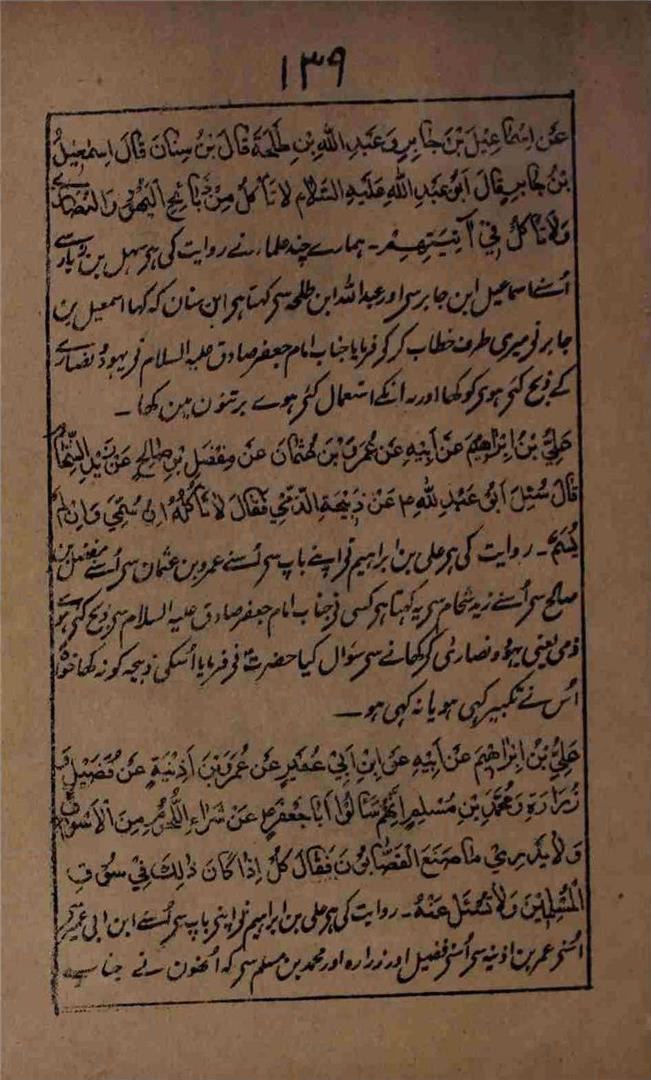 ۱۳۹
عَن اِسْمَاعِيْلَ بْنَ جَابِرٍ وَ عَبْدِ اللهِ بْنِ طَلْحَةَ قَالَ بْنُ سِنَانَ قَالَ اِسْمٰعِيْلُ
بْنُ جَابِرٍ قَالَ اَبُوْ عَبْدِ اللهِ عَلَيْهِ السَّلَام لَا تَأْكُلْ مِنْ ذَبَائِحِ الْيَهُوْدِ وَالنَّصَارٰے
وَلَا تَأْكُلْ فِيْ آنِيَتِهِمْ ۔ ہمارے چند علماء نے روایت کی ہر سہل بن زیاد سے
اُسنے اسماعیل ابن جابر سے اور عبد اللہ ابن طلحہ سے کہتا ہے ابن سنان کہ کہا اسمعیل بن
جابر نے میری طرف خطاب کر کر فرمایا جناب امام جعفر صادق علیہ السلام نے یہود و نصارے
کے ذبح کئے ہوے کو نہ کھا اور نہ انکے استعمال کئے ہوے برتنون مین کھا ۔
عَلِيُّ بْنُ اِبْرَاهِيْمَ عَنْ اَبِيْهِ عَنْ عُمَرَ وَبْنِ عُثْمَانَ عَنْ مِفْضَلِ بْنِ صَالِحٍ عَنْ زَيْدِ الشَّحَّامِ
قَالَ سُئِلَ اَبُوْ عَبْدِ للهِ ع عَنْ ذَبِيْحَةِ الذِّمِّيِ فَقَالَ لَا تَأْكُلْهُ اِنْ سُمِّيَ وَاِنْ لَمْ
يُسَمَّ ۔ روایت کی ہر علی بن ابراہیم نے اپنے باپ سے اُسنے عمرو بن عثمان سے اُسنے مفضل بن
صالح سے اُسنے زید شحام سے یہ کہتا ہے کسی نے جناب امام جعفر صادق علیہ السلام سے ذبح کئے ہوے
ذمی یعنی یہود و نصارٰی کے کھانے سے سوال کیا حضرت نے فرمایا اُسکی ذبیحہ کو نہ کھا خواہ
اُس نے تکبیر کہی ہو یا نہ کہی ہو ۔
عَلِيُّ بْنُ اِبْرَاهِيْمَ عَنْ اَبِيْهِ عَنِ ابْنِ اَبِيْ عُمَيْرٍ عَنْ عُمَرَ بْنَ اُذَنِيَةٍ عَنْ فُضَيْلٍ وَ
زُرَارَةِ وَ مُحَمَّدِ بْنِ مُسْلِمٍ اَنَّهُمْ سَأَلُوْا اَبَا جَعْفَرٍ ع عَنْ شَرَاءِ اللُّحُوْمِ مِنَ الْاَسْوَاقِ
وَلَا يَدْرِيْ مَا صَنَعَ الْقَصَّابُوْنَ فَقَالَ كُلْ اِذَا كَانَ ذٰلِكَ فِيْ سُوْقِ
الْمُسْلِمِيْنَ وَلَا تَسْئَلْ عَنْهُ ۔ روایت کی ہر علی بن ابراہیم نے اپنے باپ سے اُسنے ابن ابی عمیر سے
اُسنے عمر بن اذنیہ سے اُسنے فضیل اور زرارہ اور محمد بن مسلم سے کہ اُنھون نے جناب